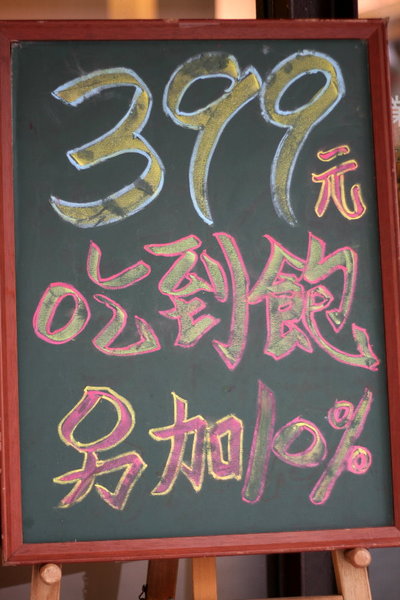 399元
吃到飽
另加10%